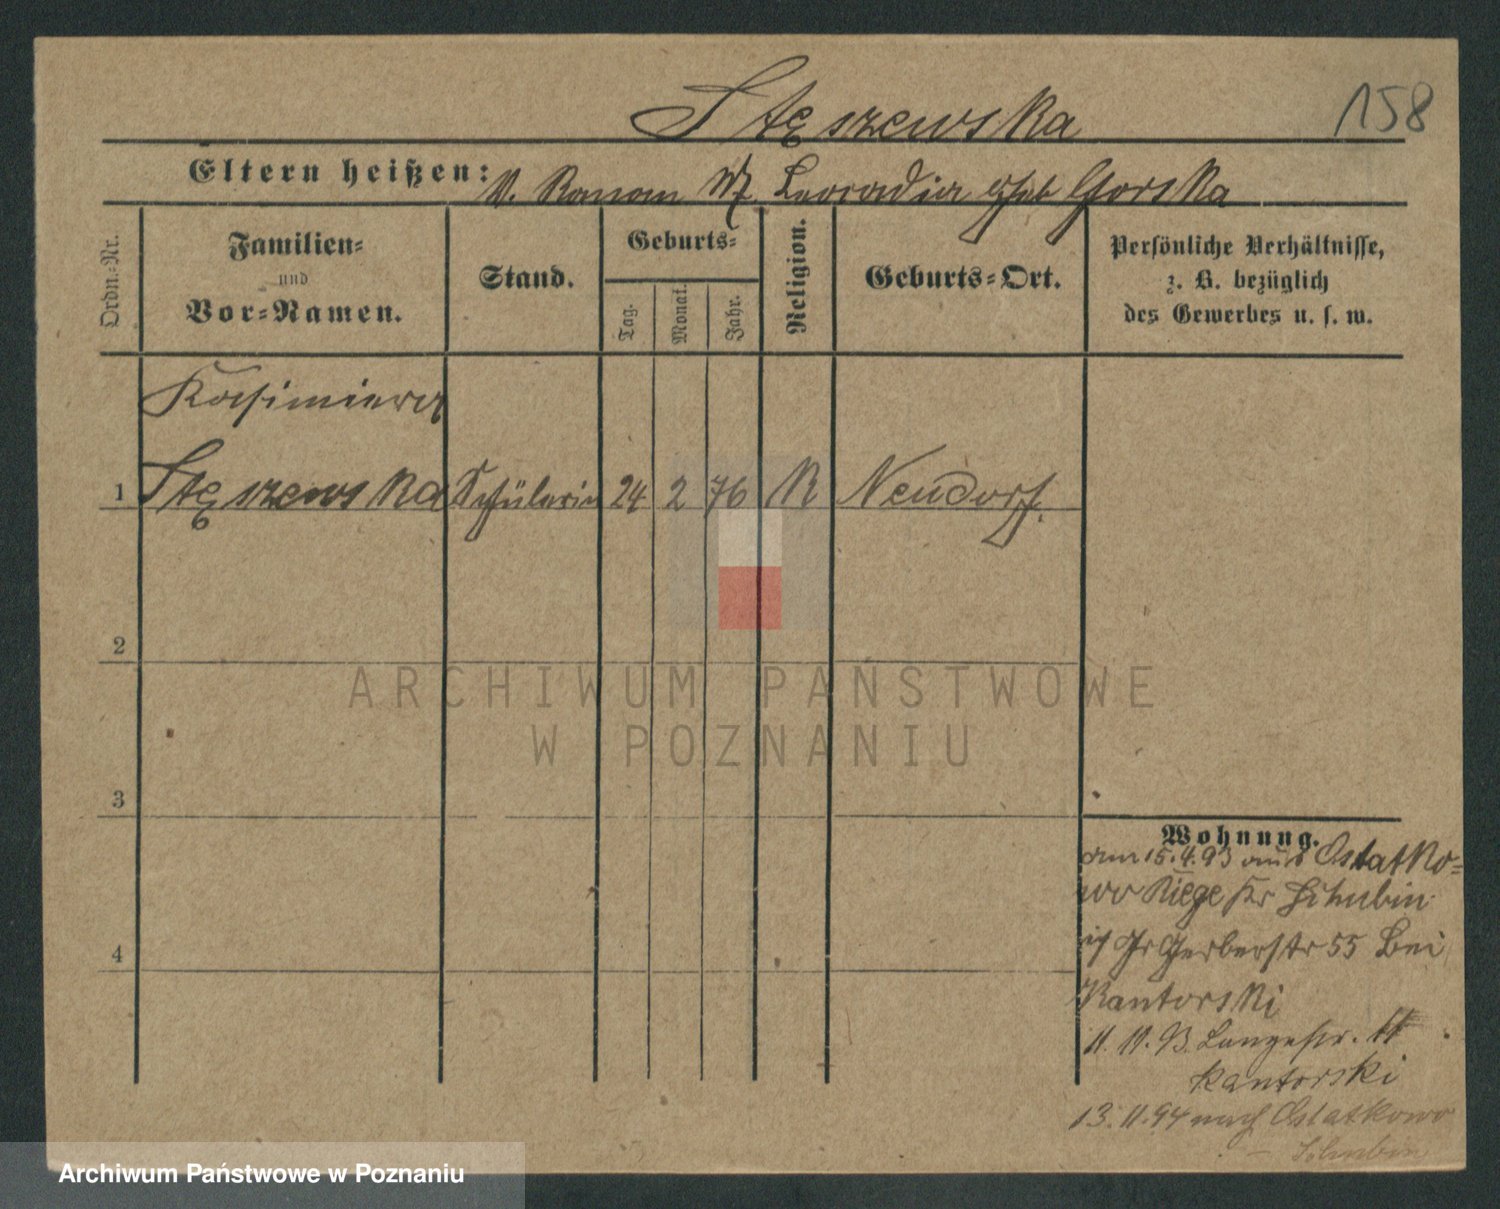 Stęszewska
158
Eltern heißen: V. Roman M. Leocadia geb Gorska
Ordn.=Nr.
Familien=
und
Vor=Namen.
Stand.
Geburts=
Tag.
Monat.
Jahr.
Religion.
Geburts=Ort.
Persönliche Verhältnisse,
z. B. bezüglich
des Gewerbes u. s. w.
Kasimiera
1 Stęszewska Schülerin 24 2 76 K Neudorf.
2
3
4
Wohnung.
am 15.4.93 aus Ostatko=
wo Kr Schubin
Gr Gerberstr 55 bei
Kantorski
11. 11. 93. Langestr.
Kantorski
13. 11. 94 nach Ostatkowo
Schubin
ARCHIWUM PAŃSTWOWE
W POZNANIU
Archiwum Państwowe w Poznaniu